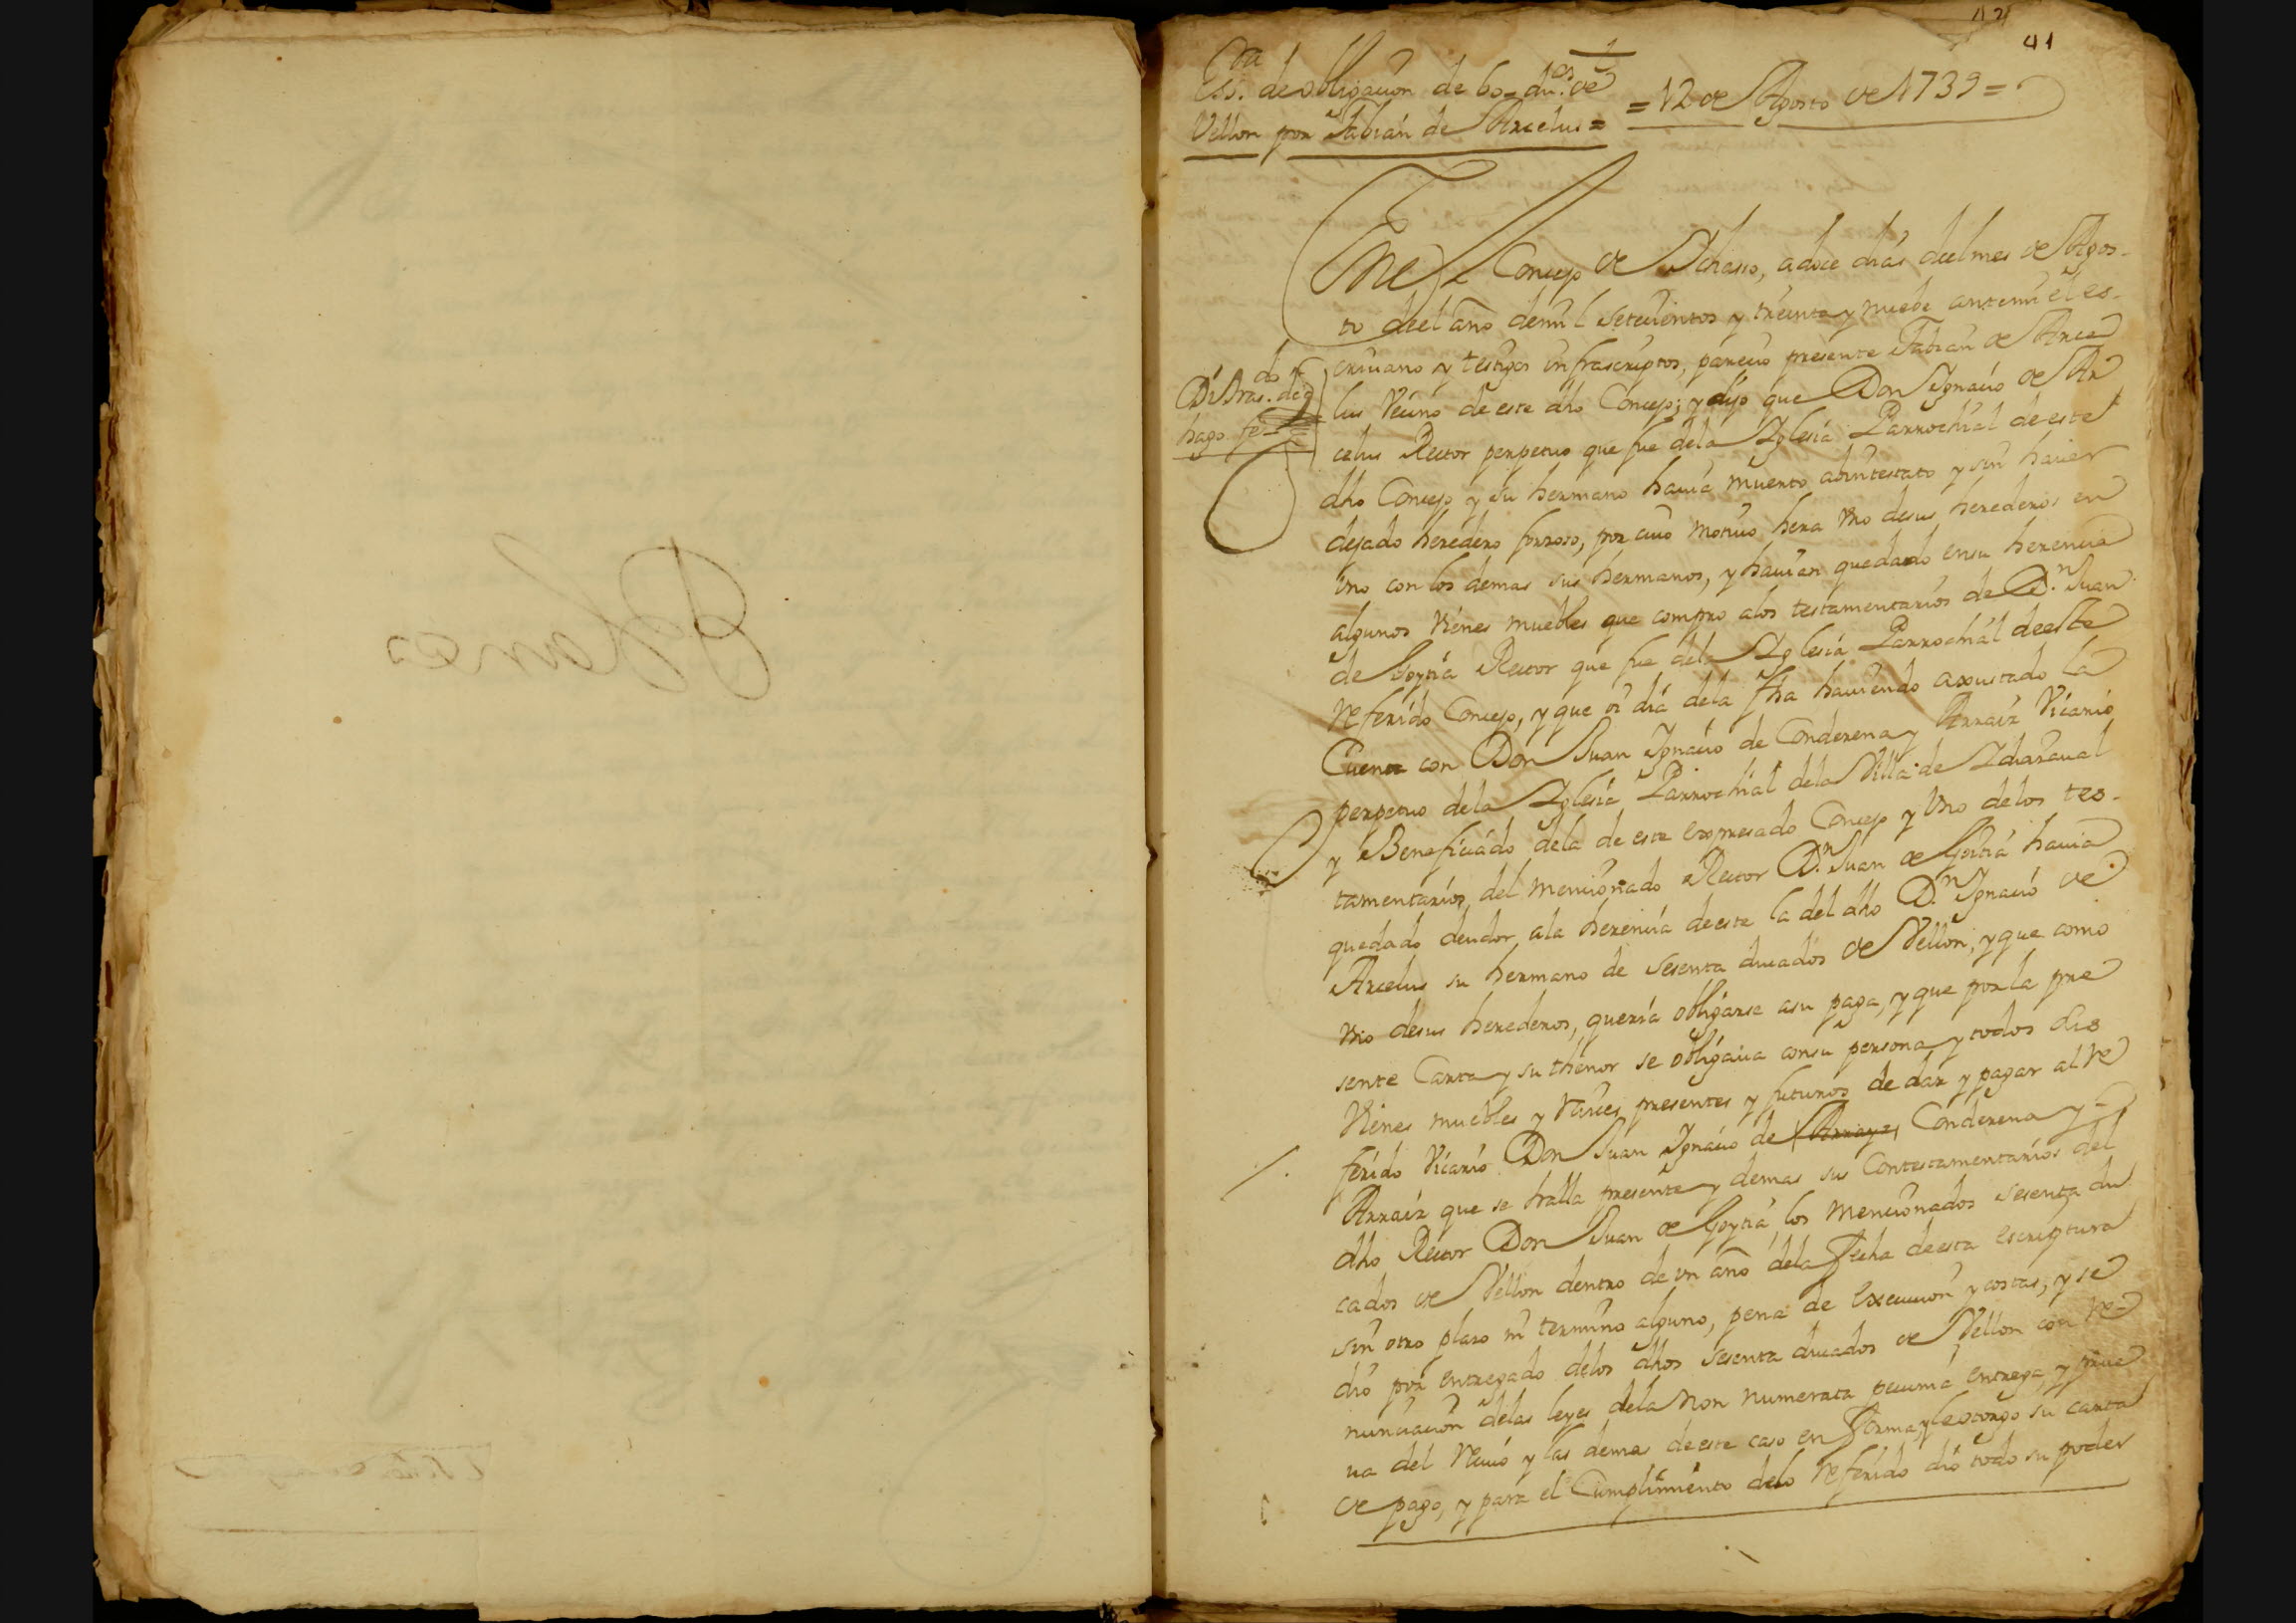 42
41
Essra. de obligacion de 60 du.os de
Vellon por Fabian de Arcelus =
= 12 de Agosto de 1739 =
En el Concejo de Ichaso, a doce dias deel mes de Agos-
to deel año de mil setecientos y treinta y nuebe ante mi el es-
crivano y testigos infrascriptos, parecio presente Fabian de Arce
lus Vecino de este dho Concejo; y dijo que Don Ignacio de Ar
celus Rector perpetuo que fue de la Yglesia Parrochial de este
dho Concejo y su hermano havia muerto abintestato y sin haver
dejado heredero forzoso, por cuio motivo hera Vno de sus herederos en
Vno con los demas sus hermanos, y havian quedado en su herencia
algunos Vienes muebles que compro a los testamentarios de D.n Juan
de Goytia Rector que fue de la Yglesia Parrochial de este
referido Concejo, y que oi dia de la fha haviendo axustado la
Cuenta con Don Juan Ignacio de Conderena y Arraiz Vicario
perpetuo de la Yglesia Parrochial de la Villa de Ichasaval
y Beneficiado de la de este expresado Concejo y Vno de los tes-
tamentarios del mencionado Rector D.n Juan de Goitia havia
quedado deudor a la herencia de este la del dho D.n Ignacio de
Arcelus su hermano de sesenta ducados de Vellon, y que como
Vno de sus herederos, queria obligarse a su paga, y que por la pre
sente Carta y su thenor se obligava con su persona y todos sus
Vienes muebles y raices presentes y futuros de dar y pagar al re
ferido Vicario Don Juan Ignacio de Arrayz Conderena y
Arraiz que se halla presente y demas sus Contestamentarios del
dho Rector Don Juan de Goytia, los mencionados sesenta du
cados de Vellon dentro de vn año de la fecha de esta escriptura
sin otro plazo ni termino alguno, pena de execucion y costas, y se
dio por entregado de los dhos sesenta ducados de Vellon con re-
nunciacion de las leyes de la non numerata pecunia entrega y prue
va del recivo y las demas de este caso en forma, y le otorgo su carta
de pago, y para el Cumplimiento de lo referido dio todo su poder
hago fe